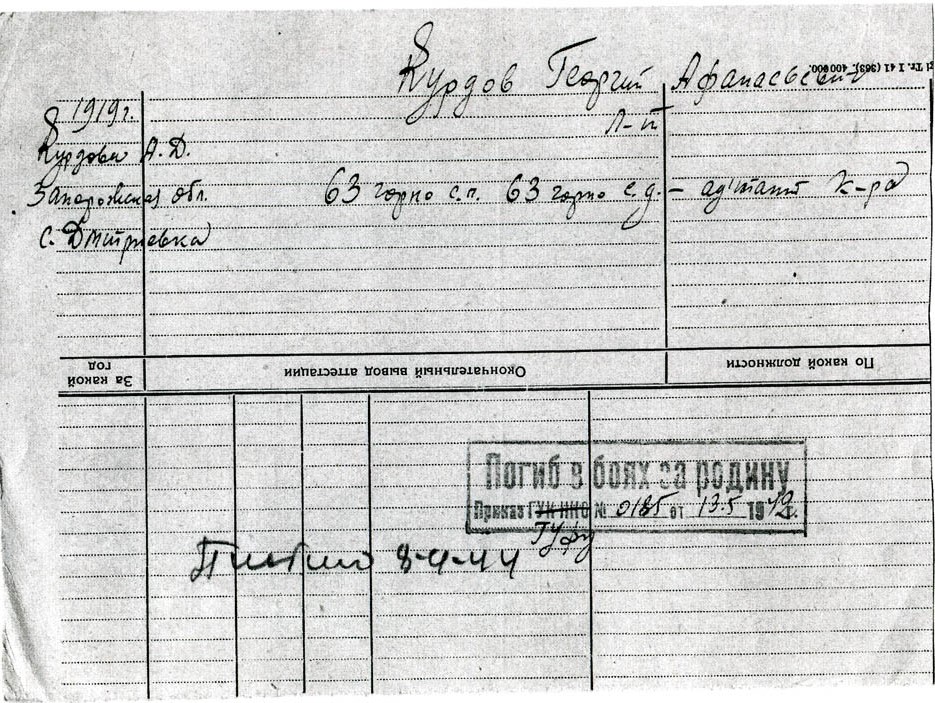 Курдов Георгий Афанасьевич
Tr. I 41 (363), 400 000.
1919 г.
л-т
Курдова А.Д.
Запорожская обл. 63 горно с.п. 63 горно с.д. – ад'ютант к-ра
с. Дмитриевка
За какой год
Окончательный вывод аттестации
По какой должности
Погиб в боях за родину
Приказ ГУК НКО № 0185 от 13.5 1942 г.
Гуфу